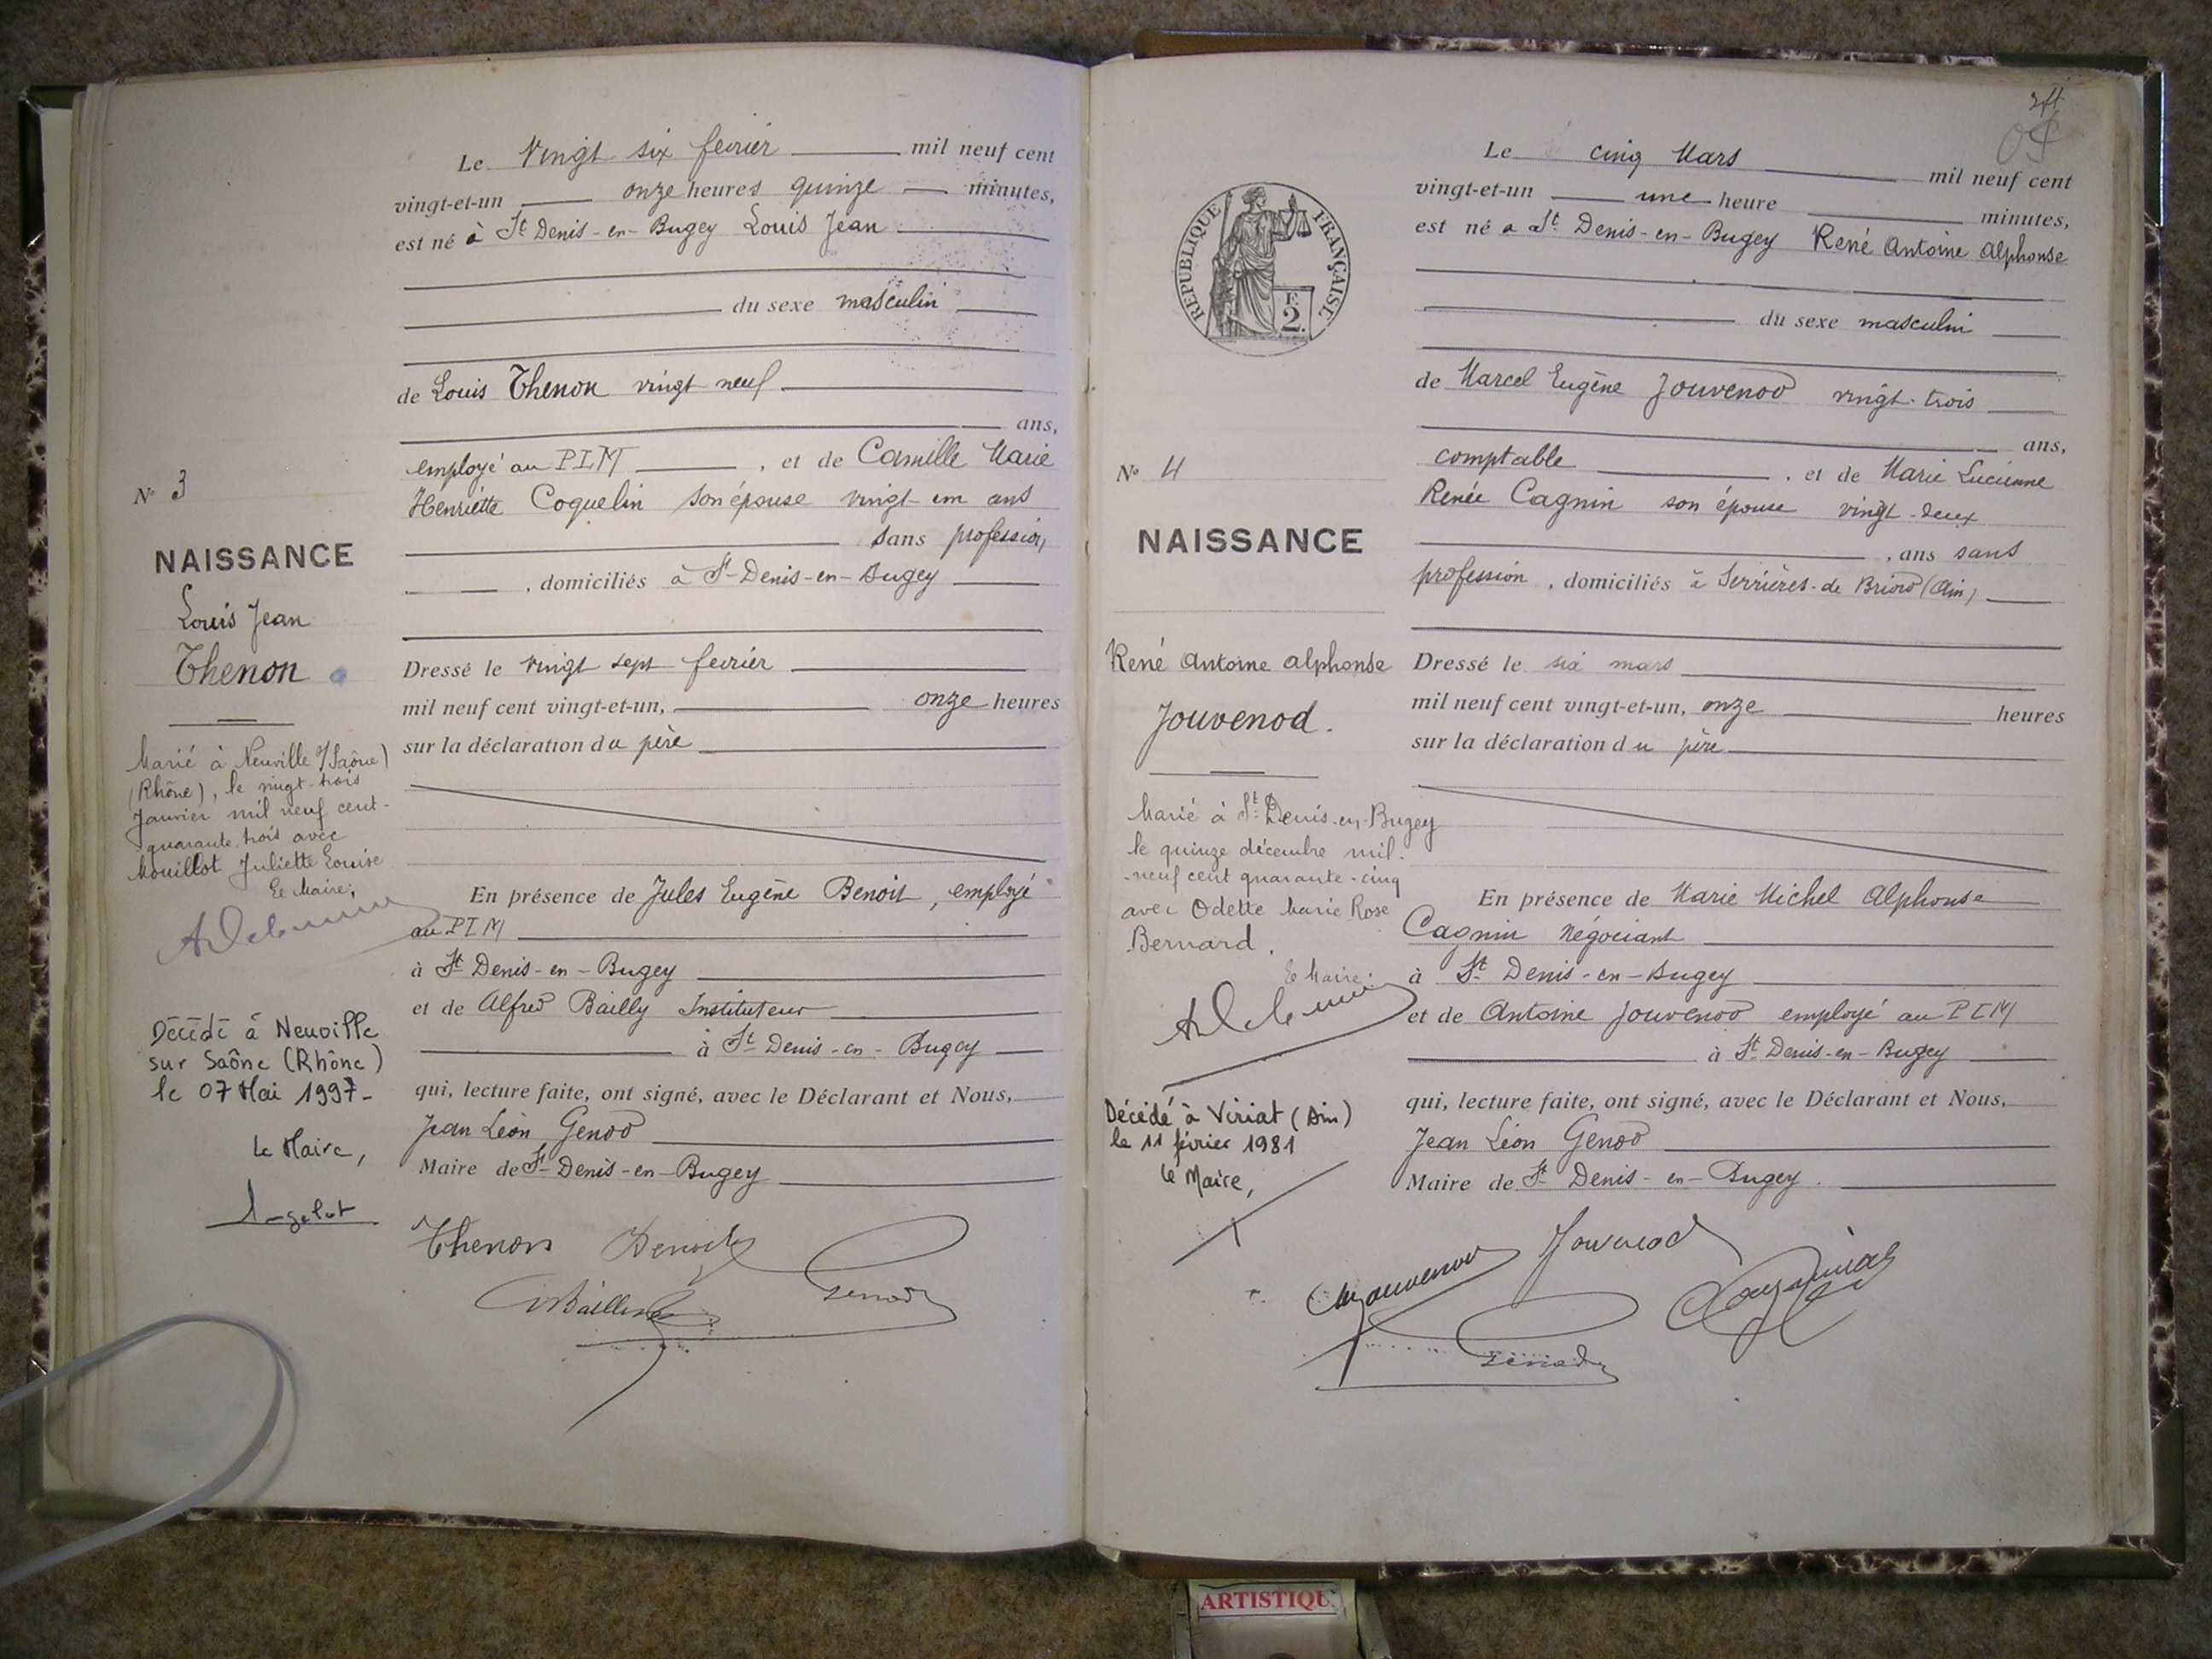 Le vingt six fevrier mil neuf cent
vingt-et-un onze heures quinze minutes,
est né à St Denis-en-Bugey Louis Jean
du sexe masculin
de Louis Thenon vingt neuf
ans,
employé au PLM , et de Camille Marie
Henriette Coquelin son épouse vingt-un ans
sans profession,
, domiciliés à St-Denis-en-Bugey
Dressé le vingt sept fevrier
mil neuf cent vingt-et-un, onze heures
sur la déclaration du père
En présence de Jules Eugène Benoit, employé
au PLM
à St Denis-en-Bugey
et de Alfred Bailly Instituteur
à St Denis-en-Bugey
qui, lecture faite, ont signé, avec le Déclarant et Nous,
Jean Léon Genod
Maire de St-Denis-en-Bugey
Thenon Benoit
Bailly Genod
N° 3
NAISSANCE
Louis Jean
Thenon
Marié à Neuville s/Saône)
(Rhône), le vingt-trois
Janvier mil neuf cent-
quarante trois avec
Mouillot Juliette Louise
Le Maire,
Décédé à Neuville
sur Saône (Rhône)
le 07 Mai 1997-
Le Maire,
Le cinq Mars mil neuf cent
vingt-et-un une heure minutes,
est né a St. Denis-en-Bugey René Antoine Alphonse
du sexe masculin
de Marcel Eugène Jouvenod vingt-trois
ans,
comptable , et de Marie Lucienne
Renée Cagnin son épouse vingt-deux
, ans sans
profession , domiciliés à Serrières-de Briord (Ain)
Dressé le six mars
mil neuf cent vingt-et-un, onze heures
sur la déclaration du père
En présence de Marie Michel Alphonse
Cagnin Négociant
à St Denis-en-Bugey
et de Antoine Jouvenod employé au PLM
à St Denis-en-Bugey
qui, lecture faite, ont signé, avec le Déclarant et Nous,
Jean Léon Genod
Maire de St Denis-en-Bugey.
Jouvenod Jouvenod
Genod
REPUBLIQUE FRANÇAISE
F.
2.
N° 4
NAISSANCE
René Antoine Alphonse
Jouvenod.
Marié à St. Denis-en-Bugey
le quinze décembre mil-
-neuf cent quarante-cinq
avec Odette Marie Rose
Bernard.
Le Maire.
Décédé à Viriat (Ain)
le 11 février 1981
Le Maire,
ARTISTIQU